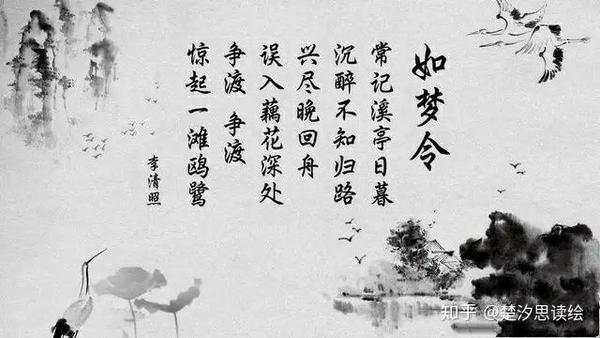 如梦令
常记溪亭日暮
沉醉不知归路
兴尽晚回舟
误入藕花深处
争渡 争渡
惊起一滩鸥鹭
李清照
知乎 @楚汐思读绘